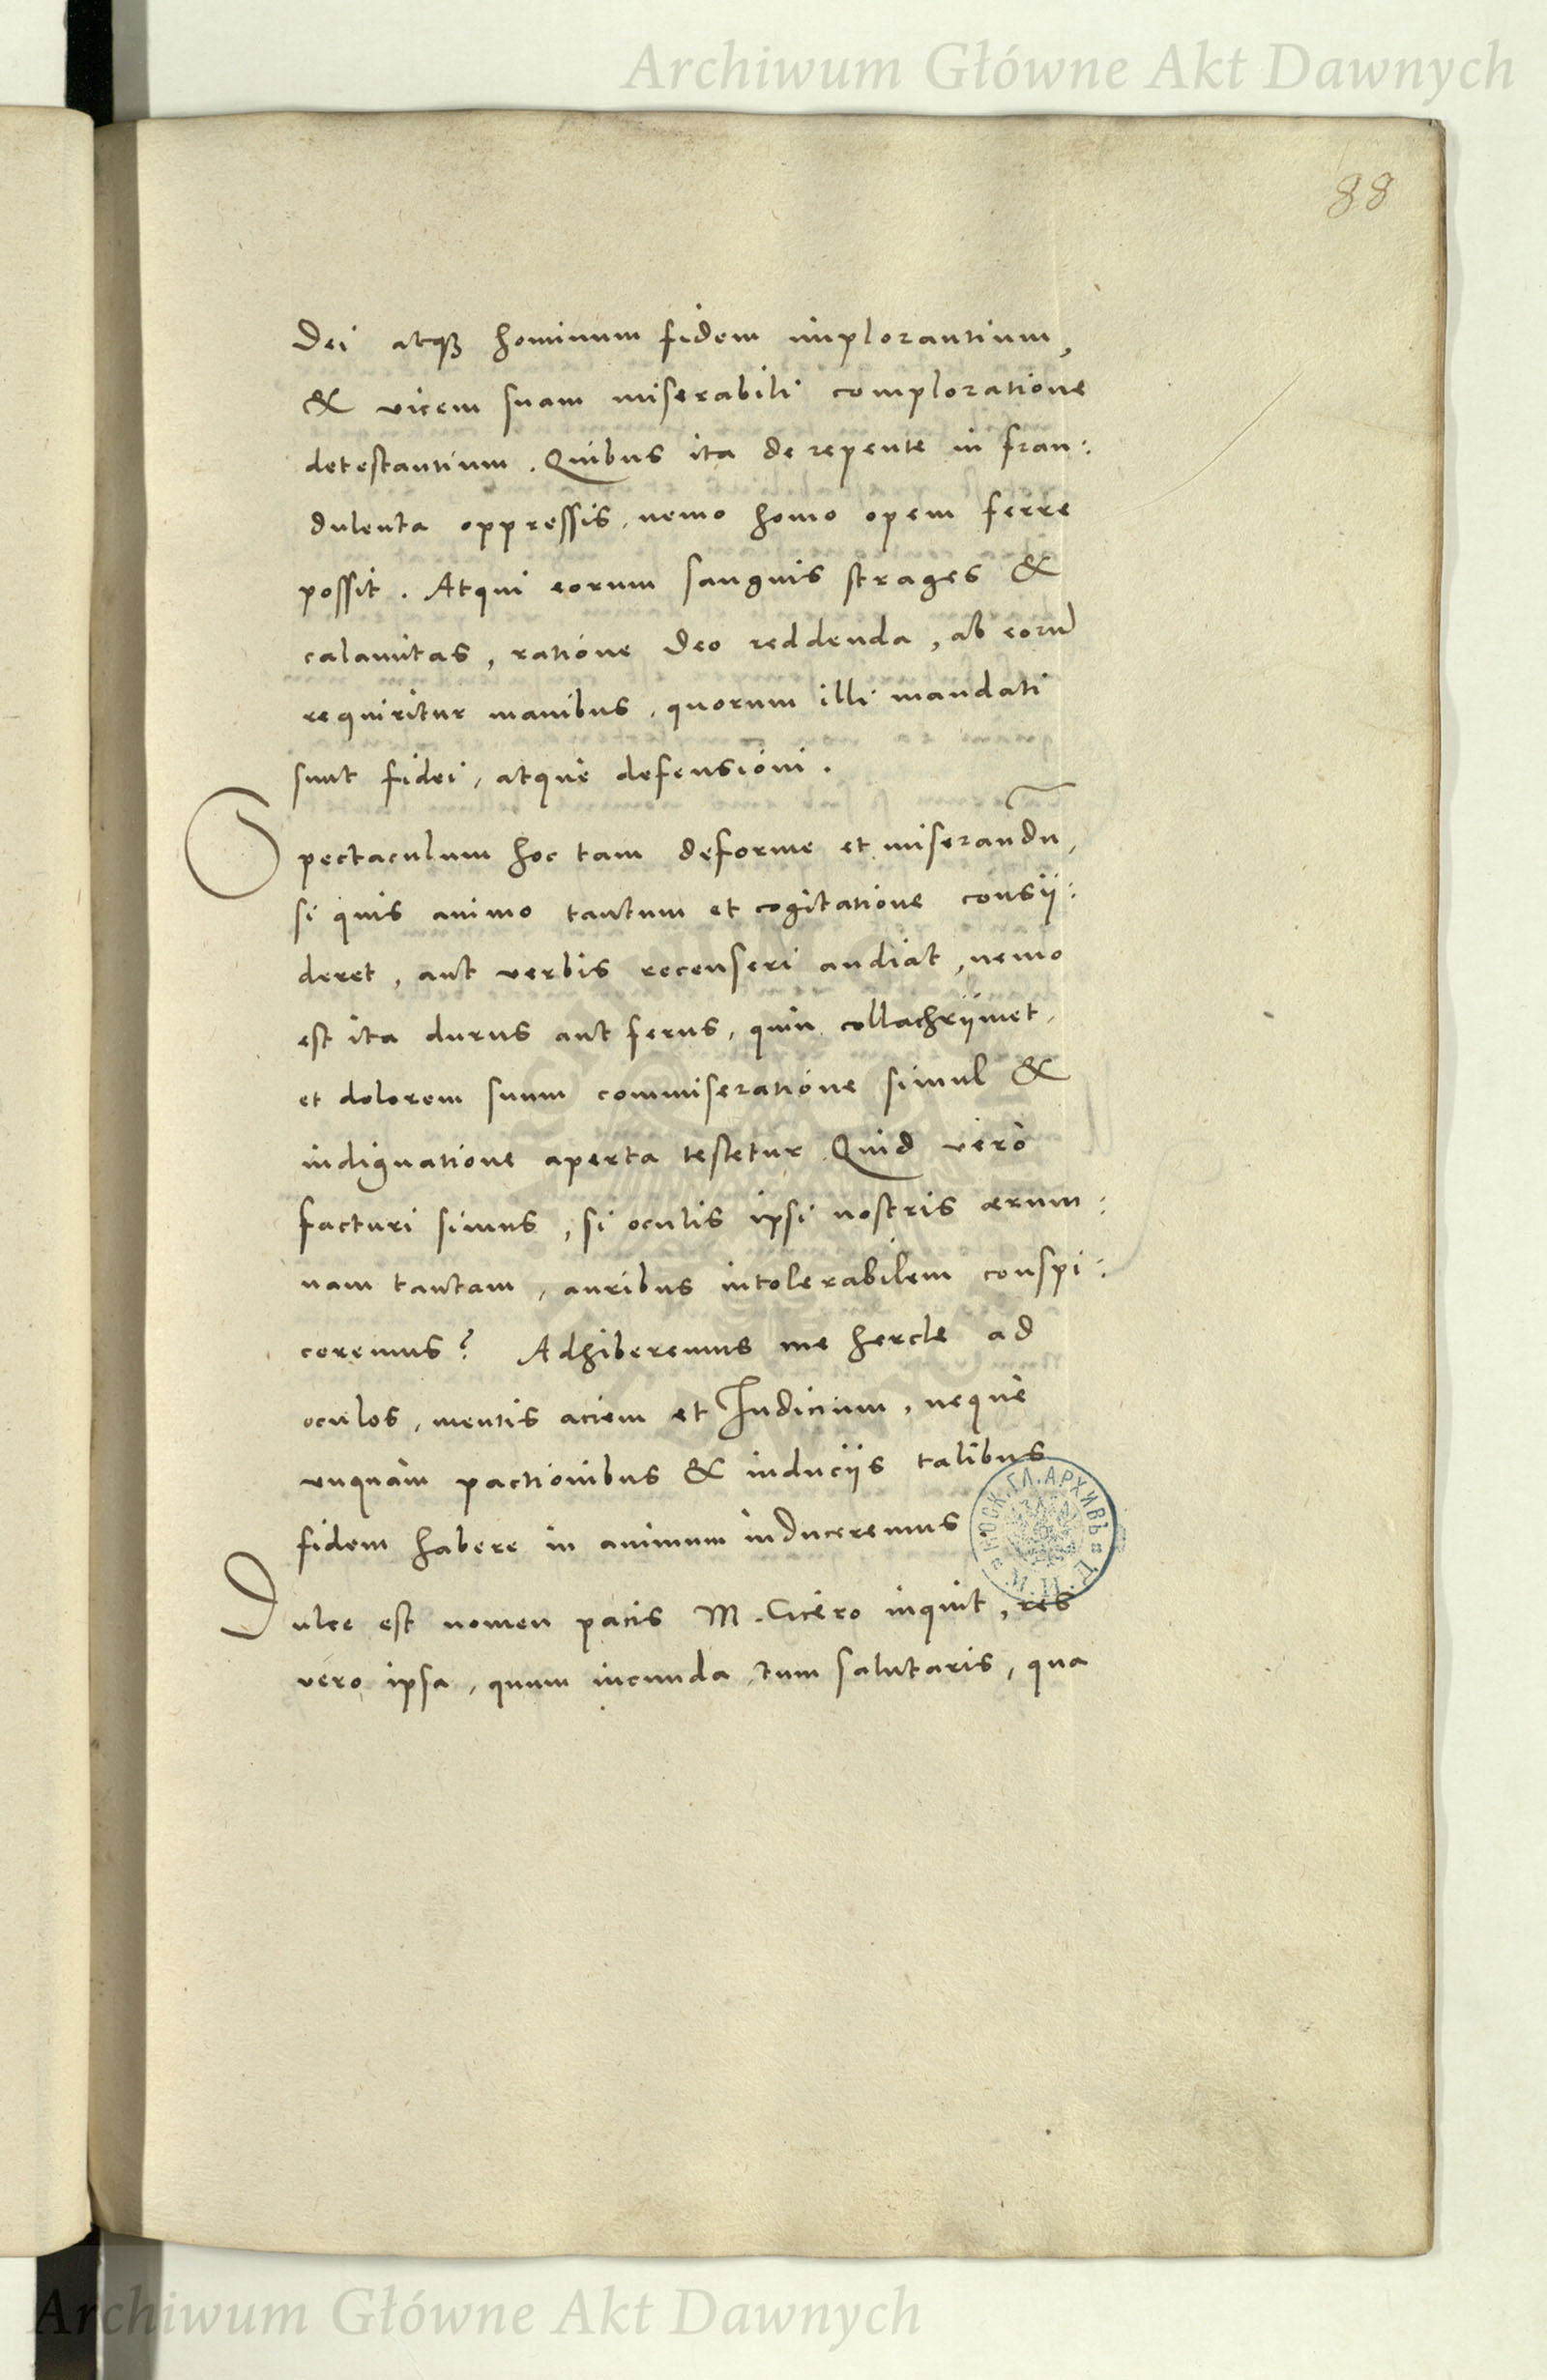 Archiwum Główne Akt Dawnych
88
Dei atqꝫ hominum fidem implorantium,
& vicem suam miserabili comploratione
detestantium. Quibus ita de repente in frau:
dulenta oppressis, nemo homo opem ferre
possit. Atqui eorum sanguis strages &
calamitas, ratione Deo reddenda, ab eorū
requiritur manibus, quorum illi mandati
sunt fidei, atque defensioni.
Spectaculum hoc tam deforme et miserandū,
si quis animo tantum et cogitatione consij:
deret, aut verbis recenseri audiat, nemo
est ita durus aut ferus, quin collachrÿmet,
et dolorem suum commiseratione simul &
indignatione aperta testetur. Quid vero
facturi simus, si oculis ipsi nostris ærum:
nam tantam, auribus intolerabilem conspi:
ceremus? Adhiberemus me hercle ad
oculos, mentis aciem et Iudicium, neque
vnquam pactionibus & induciis talibus
fidem habere in animum induceremus.
Dulce est nomen pacis M. Cicero inquit, res
vero ipsa, quum iucunda, tum salutaris, qua
МОСК. ГЛ. АРХИВЪ
М. И. Д.
Archiwum Główne Akt Dawnych